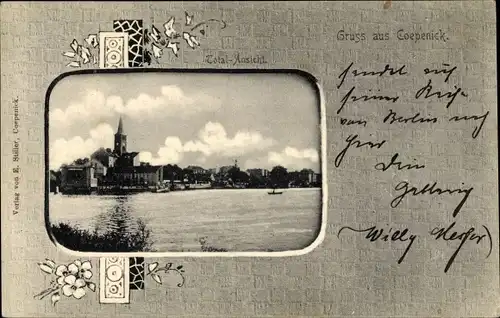 Gruss aus Coepenick.
Total-Ansicht.
Verlag von E. Stiller, Coepenick.
sendet auf
seiner Reise
von Berlin nach
hier
Dein
(Willy